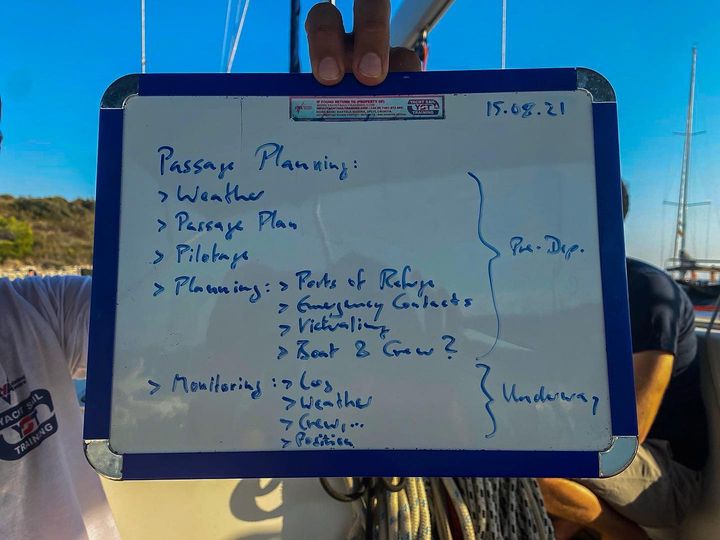 IF FOUND RETURN TO (PROPERTY OF)
YACHT SAIL
TRAINING
15.08.21
Passage Planning:
> Weather
> Passage Plan
> Pilotage
> Planning: > Ports of Refuge
> Emergency Contacts
> Victualing
> Boat & Crew?
Pre-Dep.
> Monitoring: > Log
> Weather
> Crew,...
> Position
Underway
YACHT SAIL
TRAINING